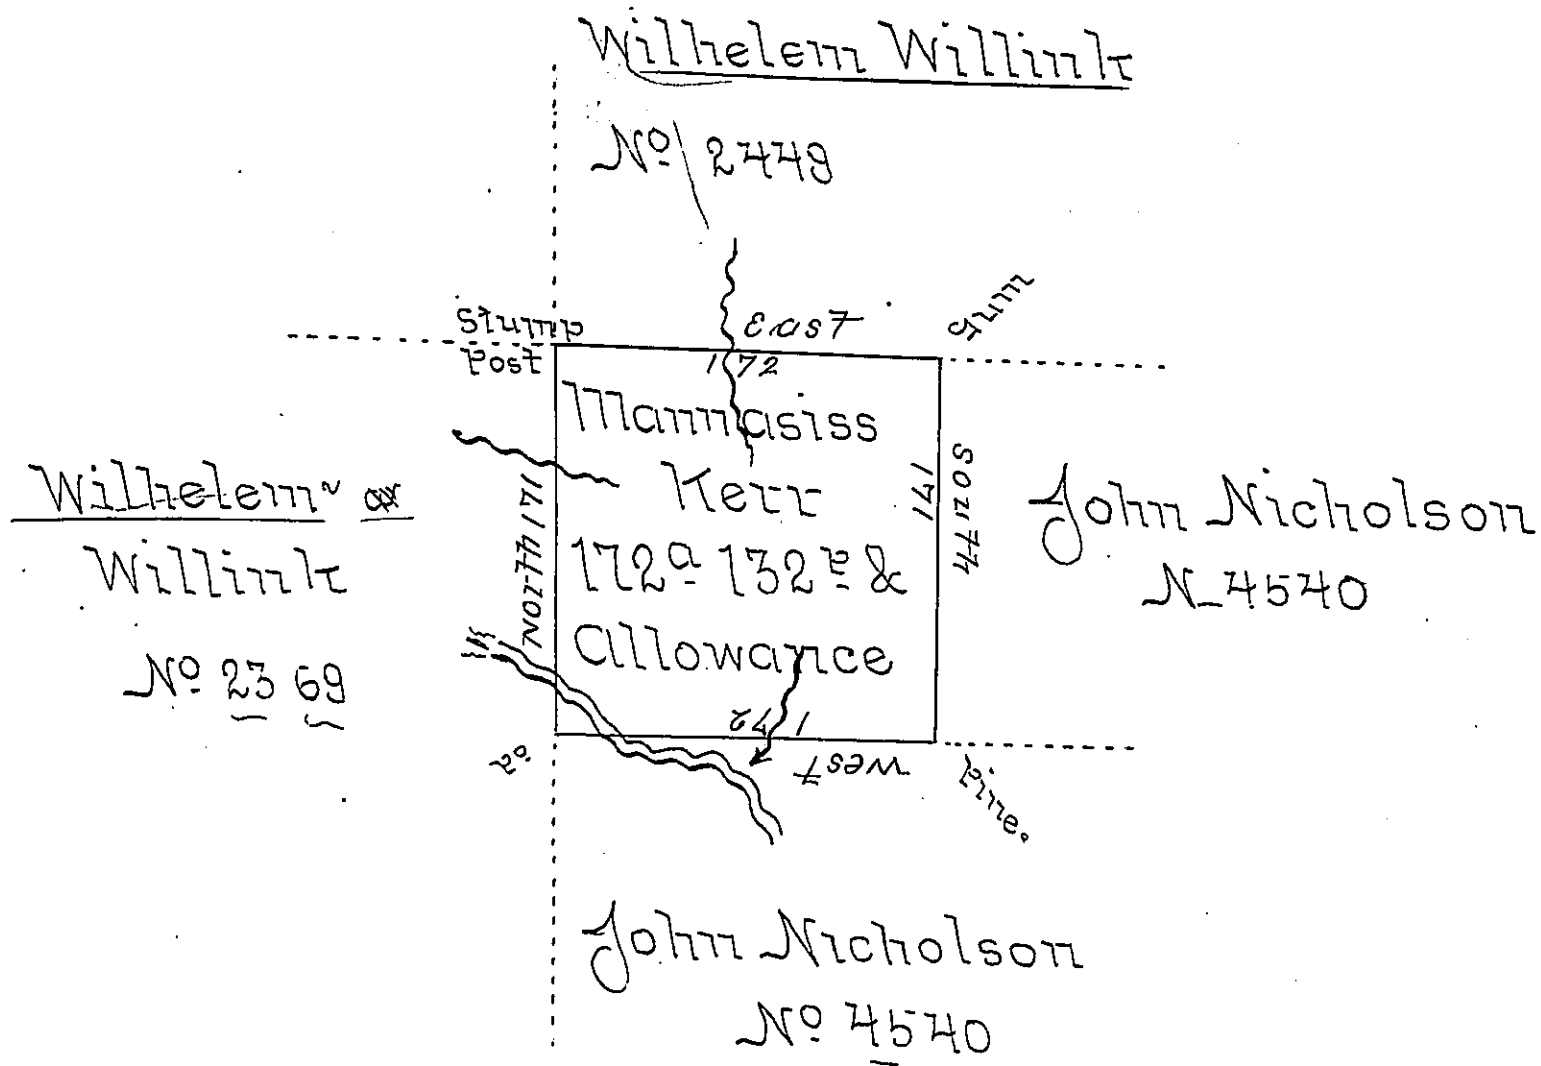 Wilhelem Willink
No 2449
Stump
Post
East
172
Gum
Mannasiss
Kerr
172a 132p &
Allowance
North 171
171
South
Wilhelem
Willink
No 2369
John Nicholson
N_ 4540
172
West
Pine.
John Nicholson
No 4540